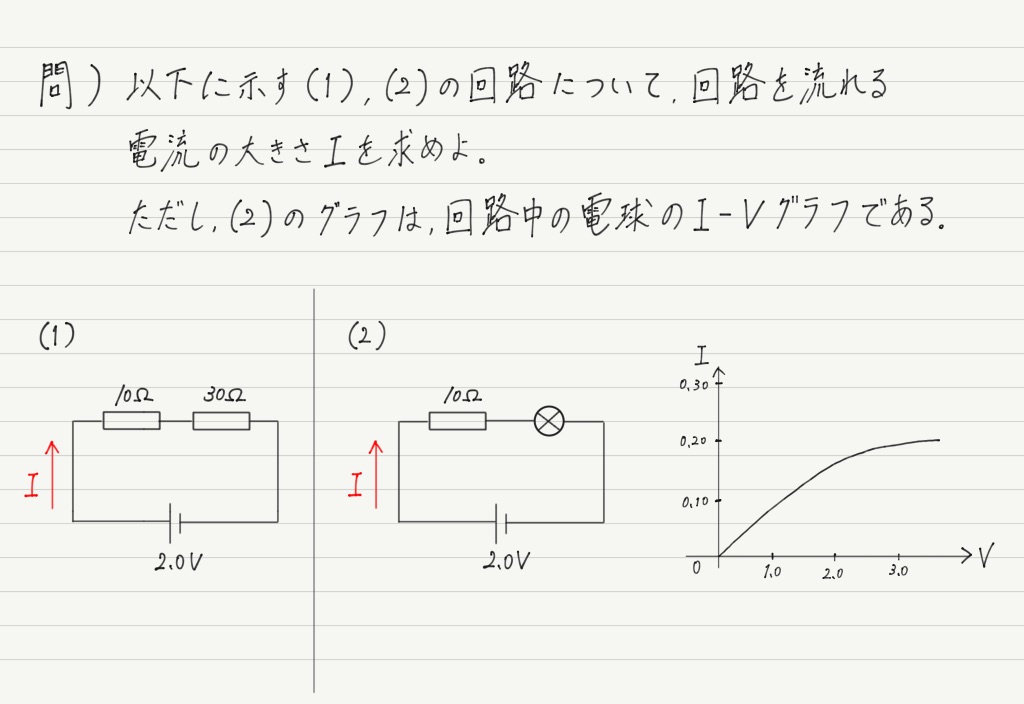 問) 以下に示す(1),(2)の回路について,回路を流れる
電流の大きさIを求めよ。
ただし,(2)のグラフは,回路中の電球のI-Vグラフである。
(1)
10Ω 30Ω
I
2.0V
(2)
10Ω
I
2.0V
I
0.30
0.20
0.10
0 1.0 2.0 3.0
V